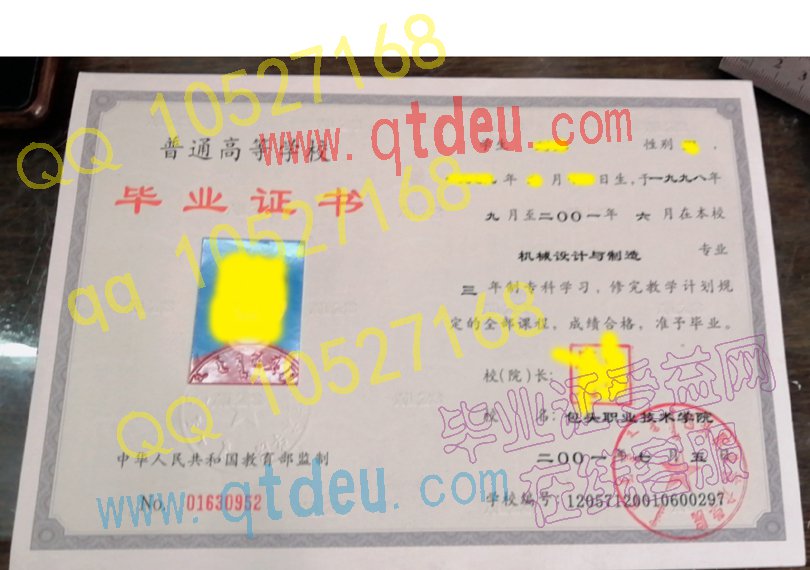 QQ 10527168
www.qtdeu.com
普通高等学校
毕业证书
学生
性别
年 月 日生,于一九九八年
九月至二〇〇一年 六月在本校
机械设计与制造 专业
三 年制专科学习,修完教学计划规
定的全部课程,成绩合格,准予毕业。
qq 10527168
校(院)长:
校 名:包头职业技术学院
二〇〇一年七月五日
QQ 10527168
中华人民共和国教育部监制
No. 01630952
学校编号:12057120010600297
www.qtdeu.com
在线客服